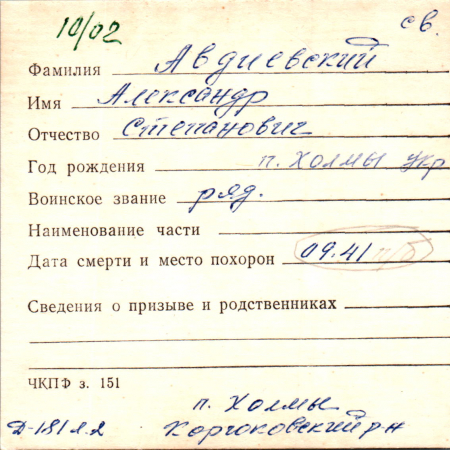 10/02 св.
Фамилия Авдиевский
Имя Александр
Отчество Степанович
Год рождения п. Холмы укр
Воинское звание ряд.
Наименование части
Дата смерти и место похорон 09.41 п/б
Сведения о призыве и родственниках
ЧКПФ з. 151
п. Холмы
Д-181 л.2 Корюковский р-н